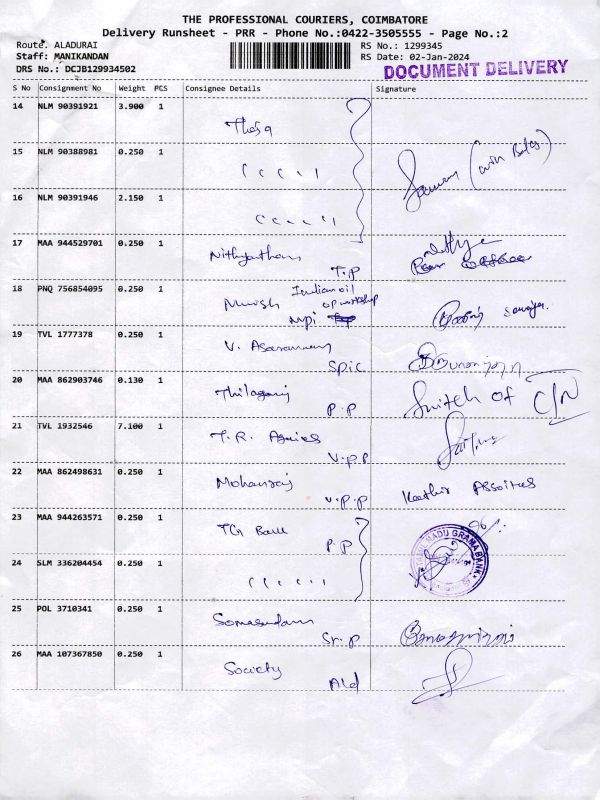 THE PROFESSIONAL COURIERS, COIMBATORE
Delivery Runsheet - PRR - Phone No.:0422-3505555 - Page No.:2
Route. ALADURAI RS No.: 1299345
Staff: MANIKANDAN RS Date: 02-Jan-2024
DRS No.: DCJB129934502 DOCUMENT DELIVERY
S No Consignment No Weight PCS Consignee Details Signature
14 NLM 90391921 3.900 1
15 NLM 90388981 0.250 1
16 NLM 90391946 2.150 1
17 MAA 944529701 0.250 1
T.P
18 PNQ 756854095 0.250 1
Indian oil
19 TVL 1777378 0.250 1
V.
Spic
20 MAA 862903746 0.130 1
Switch of C/N
P.P
21 TVL 1932546 7.100 1
T.R.
V.P.P
22 MAA 862498631 0.250 1
Mohanraj
V.P.P
23 MAA 944263571 0.250 1
TG Bank
P.P
TAMIL NADU GRAMA BANK
24 SLM 336204454 0.250 1
25 POL 3710341 0.250 1
Somasundaram
Sr.P
26 MAA 107367850 0.250 1
Society
Ald